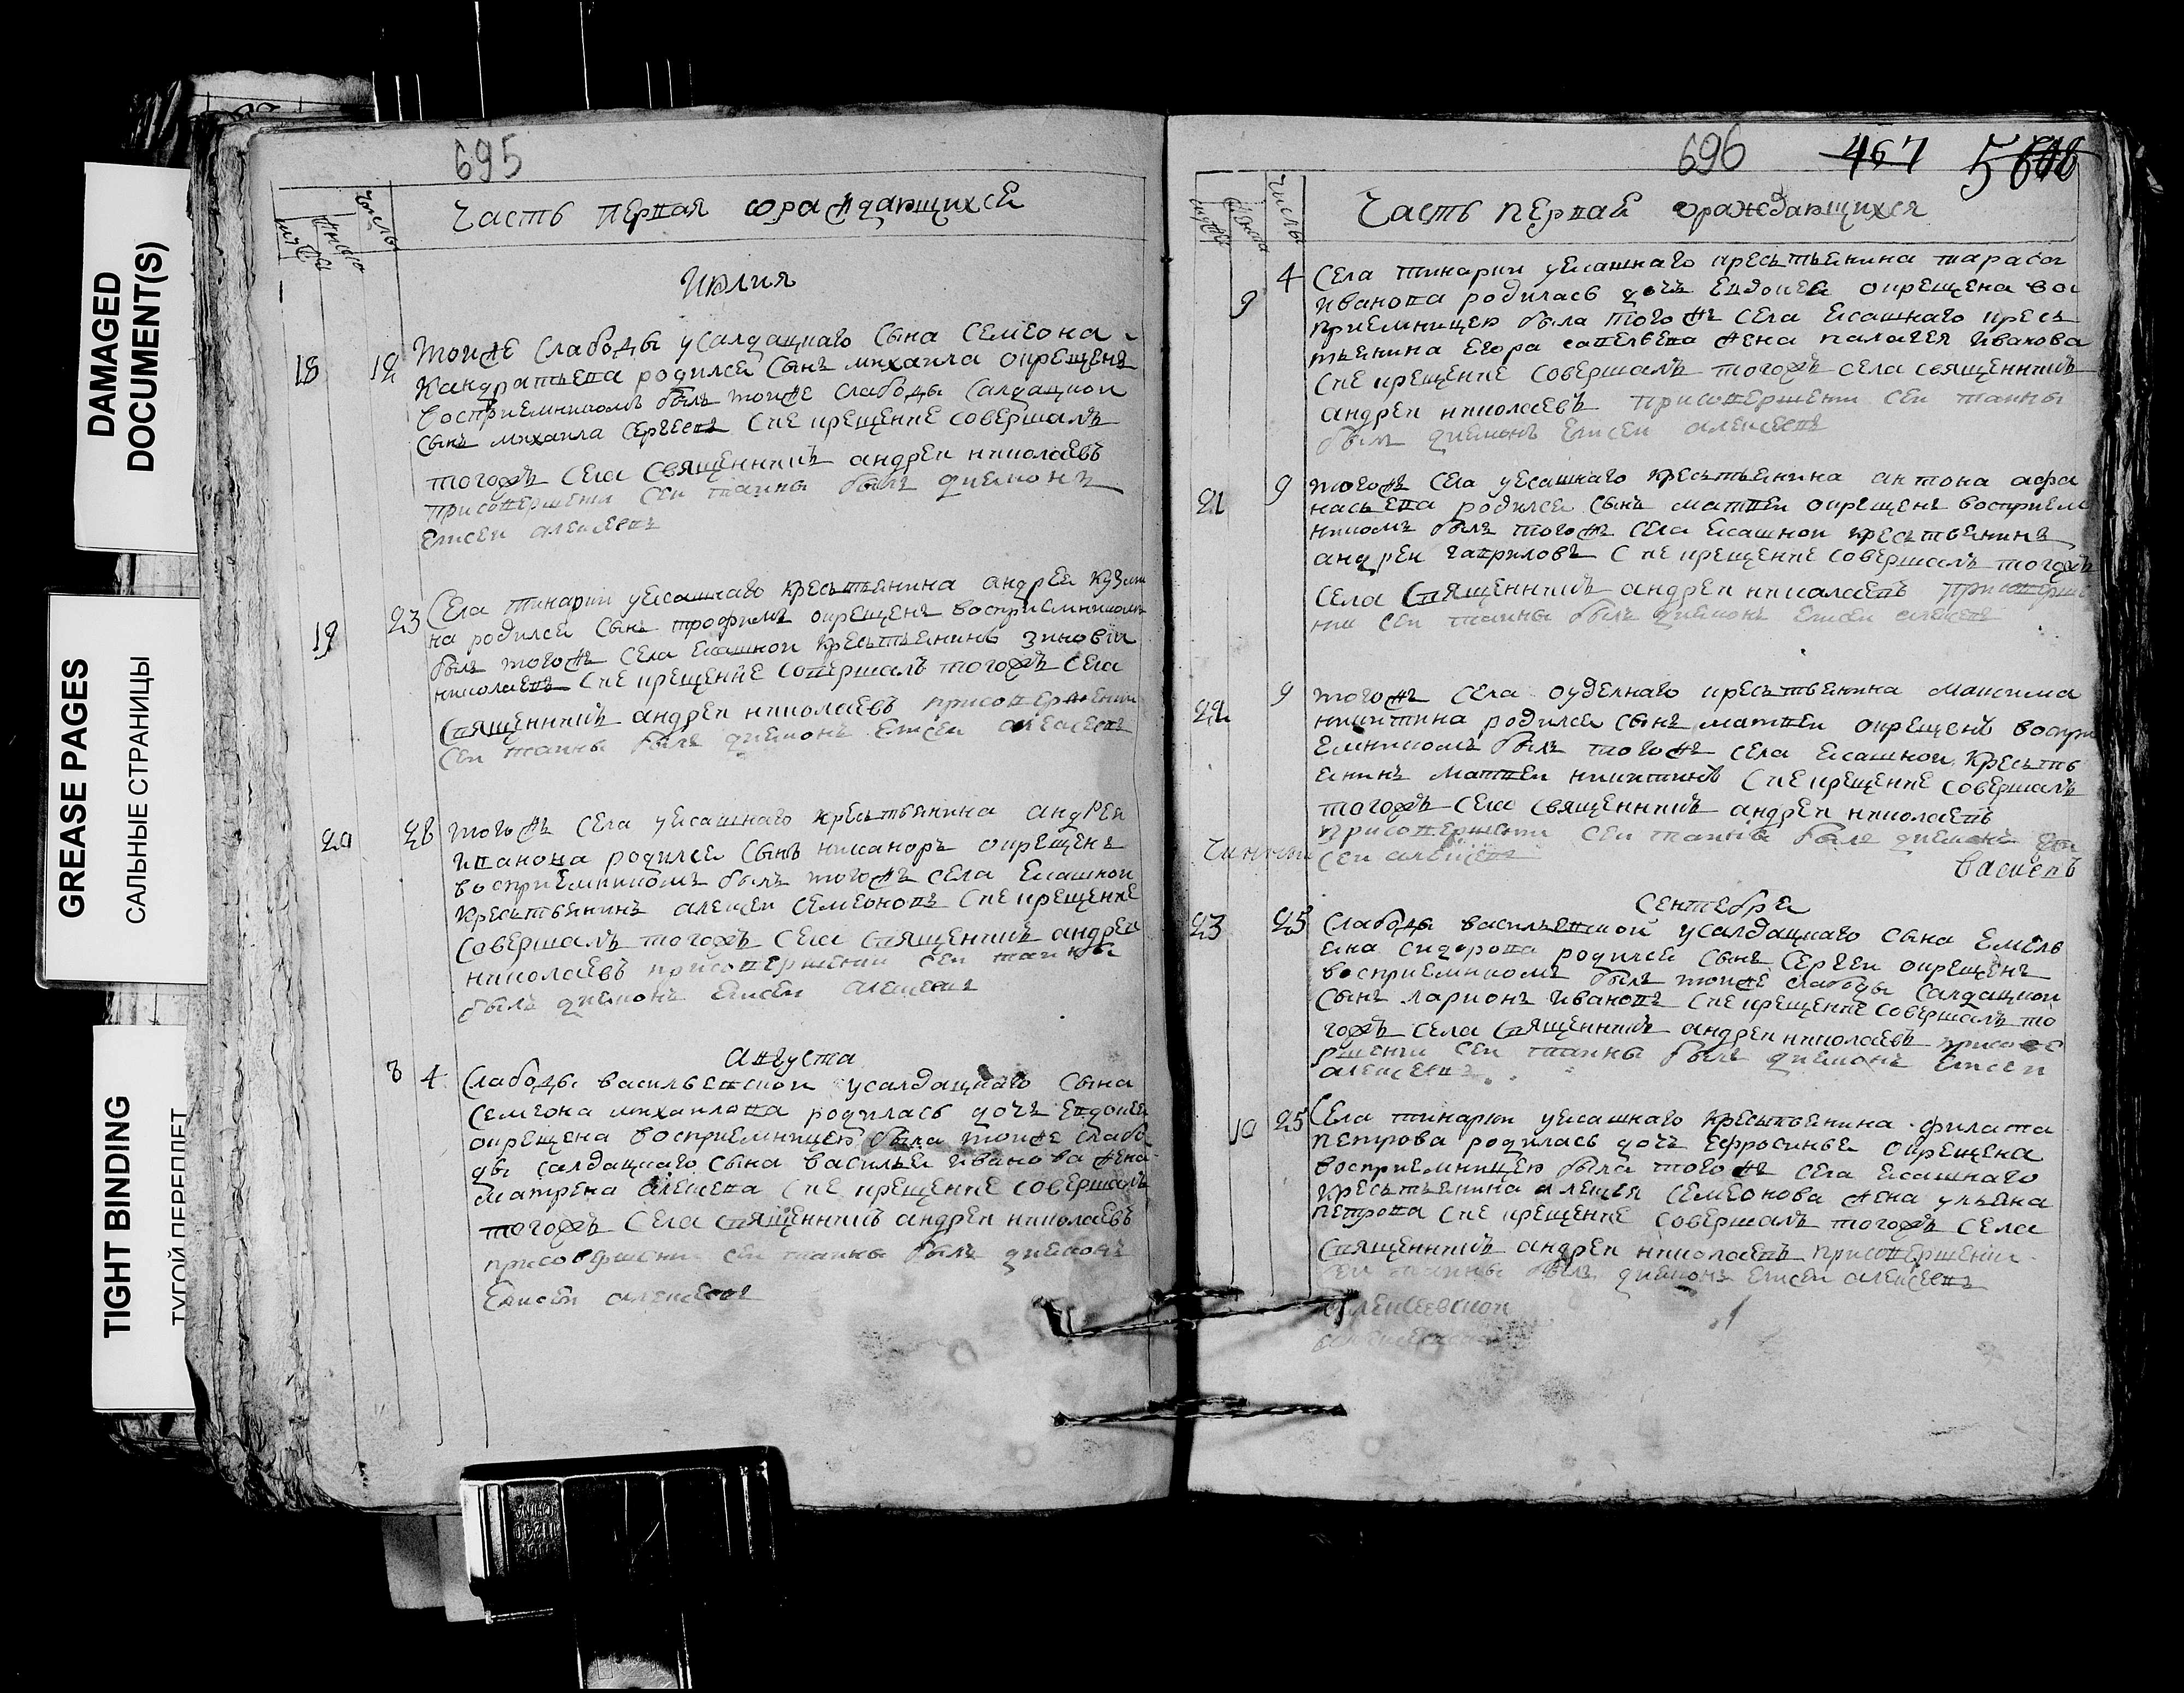 DAMAGED
DOCUMENT(S)
GREASE PAGES
САЛЬНЫЕ СТРАНИЦЫ
TIGHT BINDING
ТУГОЙ ПЕРЕПЛЕТ
695
числы
Часть первая ѡраждающихсе
Июлия
18 12 тойже слабоды усалдацкаго сына семеона
Кандратьева родилсе сынъ михаила окрещенъ
восприемникомъ былъ тойже слабоды салдацкои
сынъ михаила сергеевъ сие крещение совершалъ
тогожъ села священникъ андреи николаевъ
присовершени сеи таины былъ диеконъ
елисеи алексеевъ
19 23 Села тинарки уесашнаго крестьенина андрея кузми
на родилсе сынъ трофимъ окрещенъ восприемникомъ
былъ тогожъ села есашнои крестьенинъ зиновіи
николаевъ сие крещение совершалъ тогожъ села
священникъ андреи николаевъ присовершении
сеи таины былъ диеконъ елисеи алексеевъ
20 28 тогожъ села уесашнаго крестьенина андрея
Иванова родилсе сынъ никаноръ окрещенъ
восприемникомъ былъ тогожъ села есашнои
крестьенинъ алексеи семеоновъ сие крещение
совершалъ тогожъ села священникъ андреи
николаевъ присовершении сеи таины
былъ диеконъ елисеи алексеевъ
августа
8 4 Слабоды васильевскои усалдацкаго сына
семеона михаилова родилась дочь евдокея
окрещена восприемницею была тойже слабо
ды салдацкаго сына василья иванова жена
матрена алексева сие крещение совершалъ
тогожъ села священникъ андреи николаевъ
присовершени сеи таины былъ диеконъ
Елисеи алексеевъ
696 467
числы
Часть первая ѡраждающихся
9 4 Села тинарки уесашнаго крестьенина тараса
иванова родилась дочь евдокея окрещена вос
приемницею была тогожъ села есашнаго кресь
тьенина егора савельева жена палагея иванова
сие крещение совершалъ тогожъ села священникъ
андреи николаевъ присовершени сеи таины
былъ диеконъ елисеи алексеевъ
21 9 тогожъ села уесашнаго крестьенина антона афа
насьева родилсе сынъ матвеи окрещенъ восприем
никомъ былъ тогожъ села есашнои крестьенинъ
андреи гавриловъ сие крещение совершалъ тогожъ
села священникъ андреи николаевъ присоверше
нии сеи таины былъ диеконъ елисеи алексеевъ
22 9 тогожъ села оуделнаго крестьенина максима
никитина родилсе сынъ матвеи окрещенъ воспри
емникомъ былъ тогожъ села есашнои кресть
енинъ матвеи никитинъ сие крещение совершалъ
тогожъ села священникъ андреи николаевъ
присовершени сеи таины былъ диеконъ ели
сеи алексеевъ
сентебре
23 25 слабоды васильевскои усалдацкаго сына емель
ена сидорова родилсе сынъ сергеи окрещенъ
восприемникомъ былъ тойже слабоды салдацкои
сынъ ларионъ ивановъ сие крещение совершалъ то
гожъ села священникъ андреи николаевъ присове
ршении сеи таины былъ диеконъ елисеи
алексеевъ
10 25 Села тинарки уесашнаго крестьенина филата
петрова родилась дочь ефросинье окрещена
восприемницею была тогожъ села есашнаго
крестьенина алексея семеонова жена ульена
петрова сие крещение совершалъ тогожъ села
священникъ андреи николаевъ присовершении
сеи таины былъ диеконъ елисеи алексеевъ